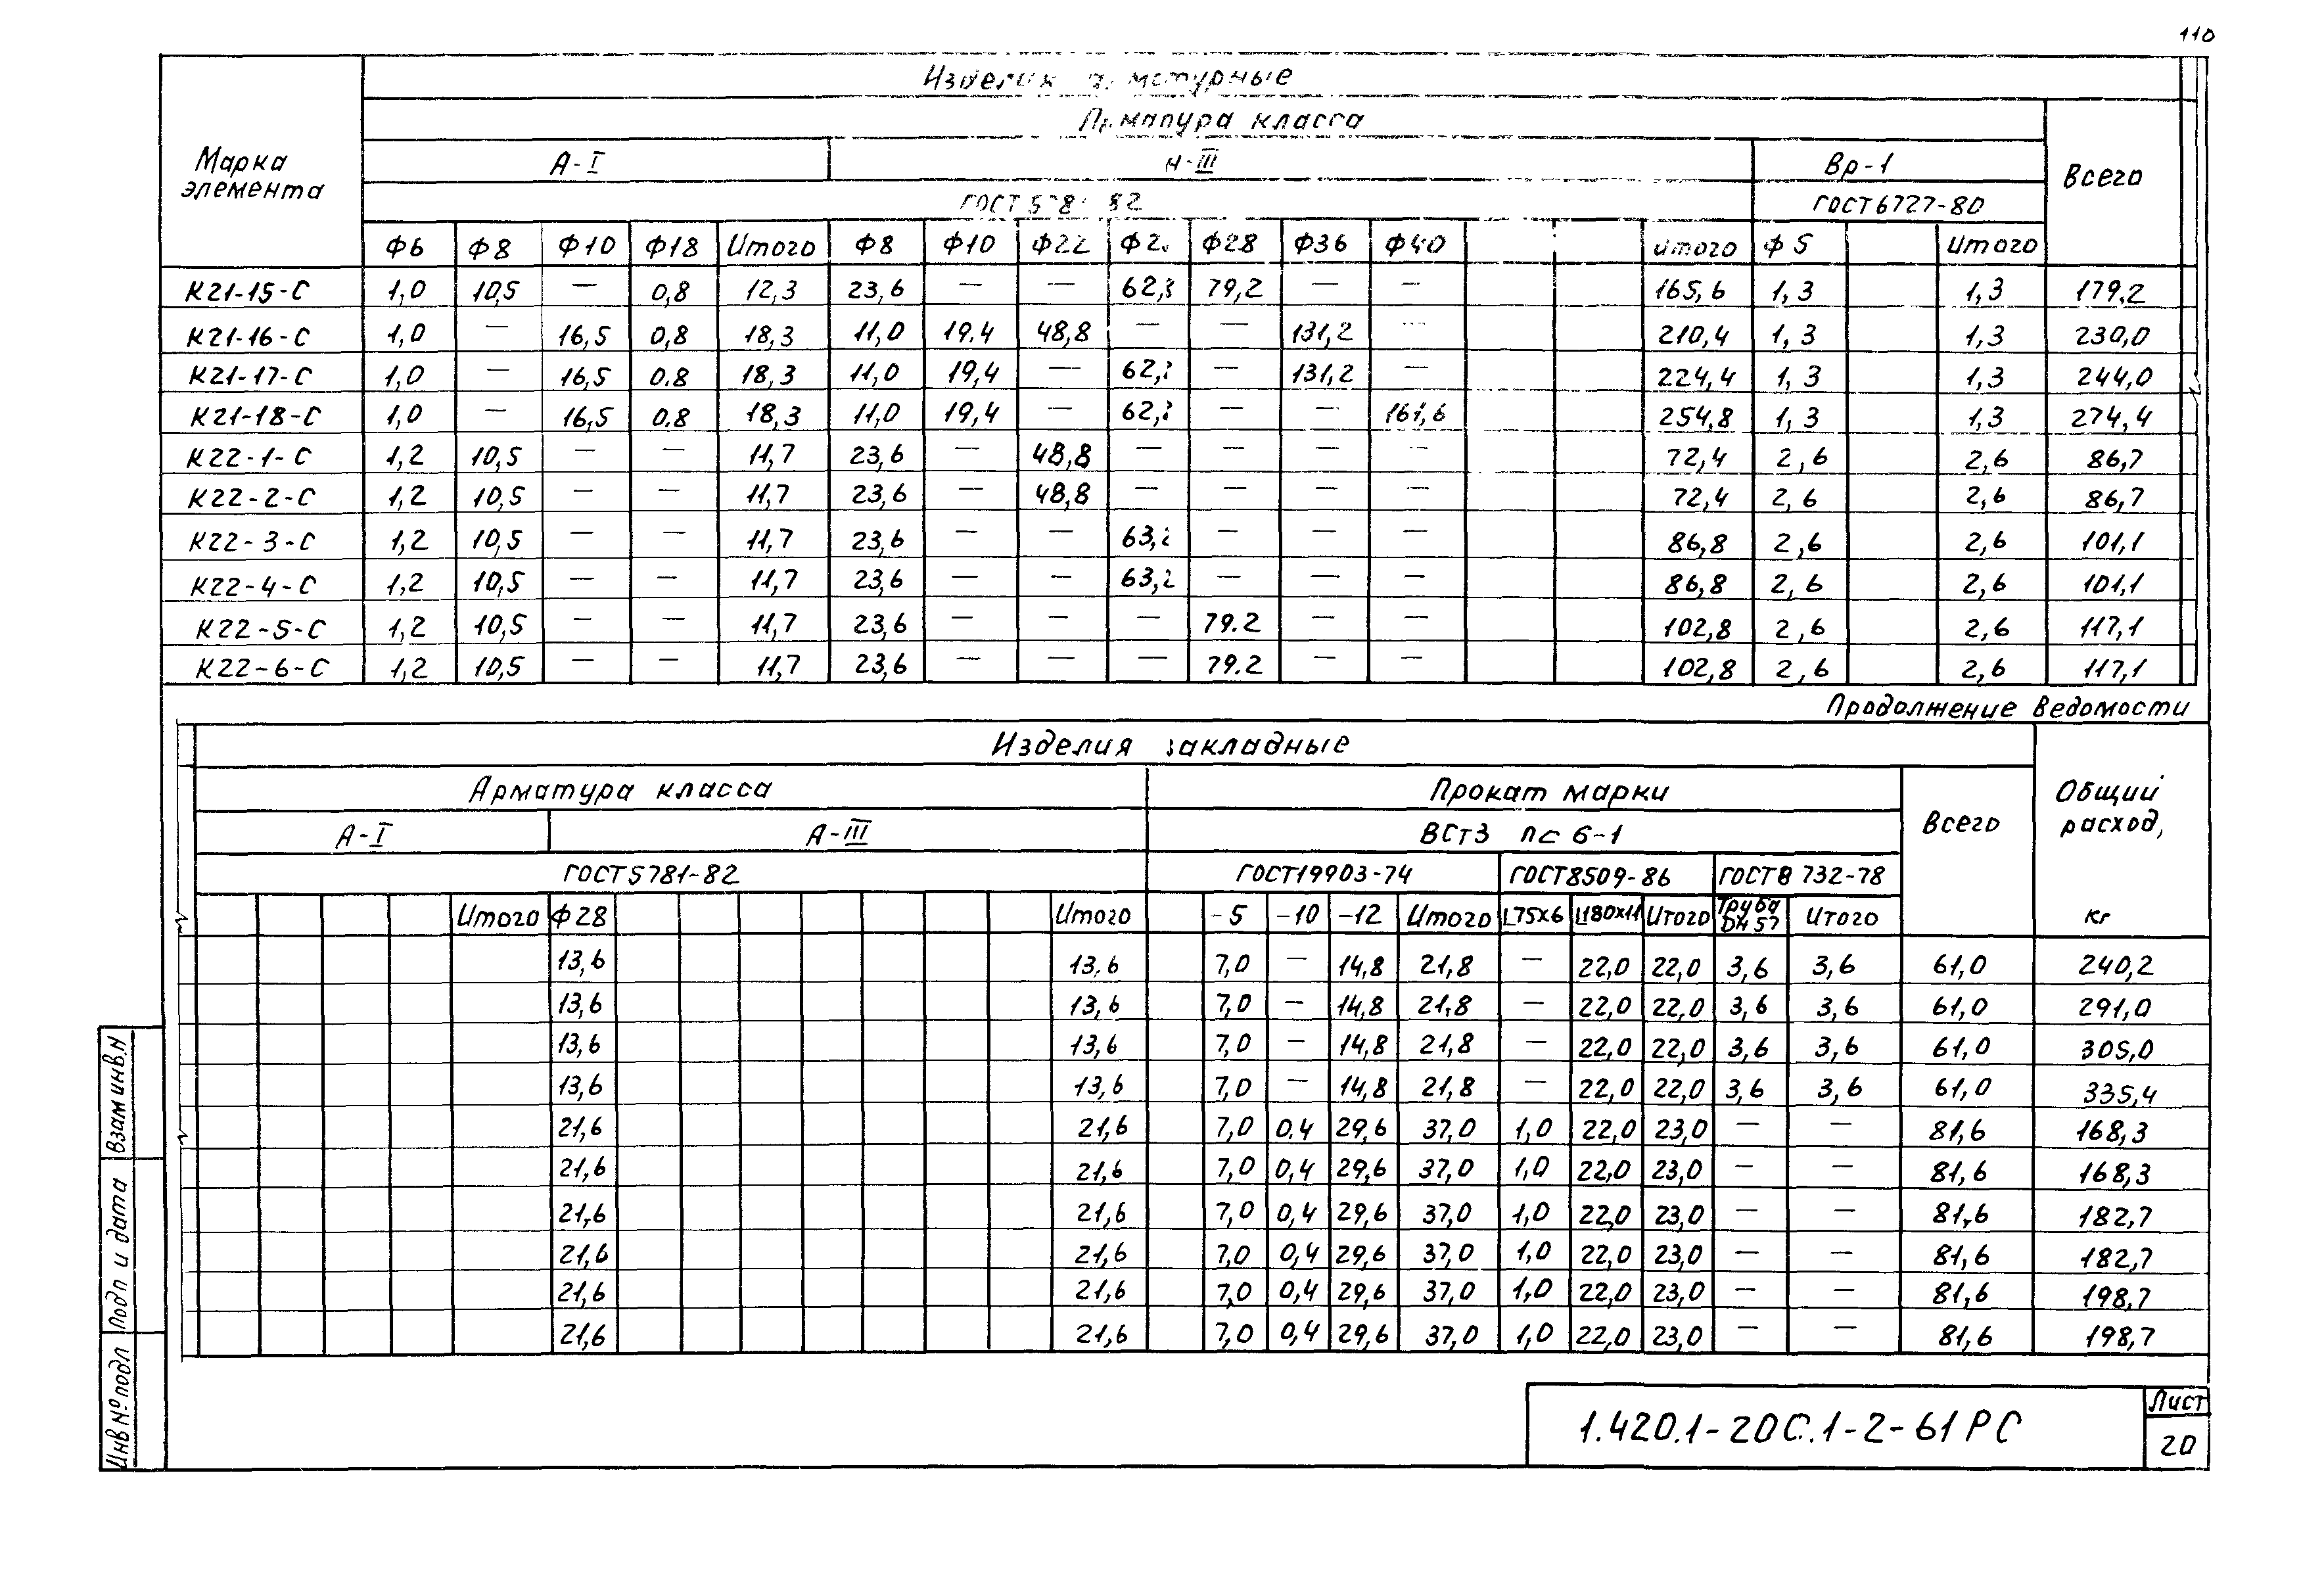 110
Изделия арматурные
Марка элемента
Арматура класса
Всего
А-I А-III Вр-1
ГОСТ 5781-82 ГОСТ 6727-80
Ф6 Ф8 Ф10 Ф18 Итого Ф8 Ф10 Ф22 Ф28 Ф36 Ф40 итого Ф5 Итого
К21-15-С 1,0 10,5 — 0,8 12,3 23,6 — — 62,8 79,2 — — 165,6 1,3 1,3 179,2
К21-16-С 1,0 — 16,5 0,8 18,3 11,0 19.4 48,8 — — 131,2 — 210,4 1,3 1,3 230,0
К21-17-С 1,0 — 16,5 0.8 18,3 11,0 19,4 — 62,8 — 131,2 — 224,4 1,3 1,3 244,0
К21-18-С 1,0 — 16,5 0.8 18,3 11,0 19,4 — 62,8 — — 161,6 254,8 1,3 1,3 274,4
К22-1-С 1,2 10,5 — — 11,7 23,6 — 48,8 — — — — 72,4 2,6 2,6 86,7
К22-2-С 1,2 10,5 — — 11,7 23,6 — 48,8 — — — — 72,4 2,6 2,6 86,7
К22-3-С 1,2 10,5 — — 11,7 23,6 — — 63,2 — — — 86,8 2,6 2,6 101,1
К22-4-С 1,2 10,5 — — 11,7 23,6 — — 63,2 — — — 86,8 2,6 2,6 101,1
К22-5-С 1,2 10,5 — — 11,7 23,6 — — — 79.2 — — 102,8 2,6 2,6 117,1
К22-6-С 1,2 10,5 — — 11,7 23,6 — — — 79.2 — — 102,8 2,6 2,6 117,1
Продолжение ведомости
Изделия закладные
Арматура класса Прокат марки Всего Общий расход, кг
А-I А-III ВСт3 пс 6-1
ГОСТ 5781-82 ГОСТ 19903-74 ГОСТ 8509-86 ГОСТ 8732-78
Итого Ф28 Итого -5 -10 -12 Итого L75х6 L180х11 Итого Труба Dн 57 Итого
13,6 13,6 7,0 — 14,8 21,8 — 22,0 22,0 3,6 3,6 61,0 240,2
13,6 13,6 7,0 — 14,8 21,8 — 22,0 22,0 3,6 3,6 61,0 291,0
13,6 13,6 7,0 — 14,8 21,8 — 22,0 22,0 3,6 3,6 61,0 305,0
13,6 13,6 7,0 — 14,8 21,8 — 22,0 22,0 3,6 3,6 61,0 335,4
21,6 21,6 7,0 0.4 29,6 37,0 1,0 22,0 23,0 — — 81,6 168,3
21,6 21,6 7,0 0,4 29,6 37,0 1,0 22,0 23,0 — — 81,6 168,3
21,6 21,6 7,0 0,4 29,6 37,0 1,0 22,0 23,0 — — 81,6 182,7
21,6 21,6 7,0 0,4 29,6 37,0 1,0 22,0 23,0 — — 81,6 182,7
21,6 21,6 7,0 0,4 29,6 37,0 1,0 22,0 23,0 — — 81,6 198,7
21,6 21,6 7,0 0,4 29,6 37,0 1,0 22,0 23,0 — — 81,6 198,7
Взам инв.N
Подп и дата
Инв №подл
1.420.1-20С.1-2-61РС
Лист
20